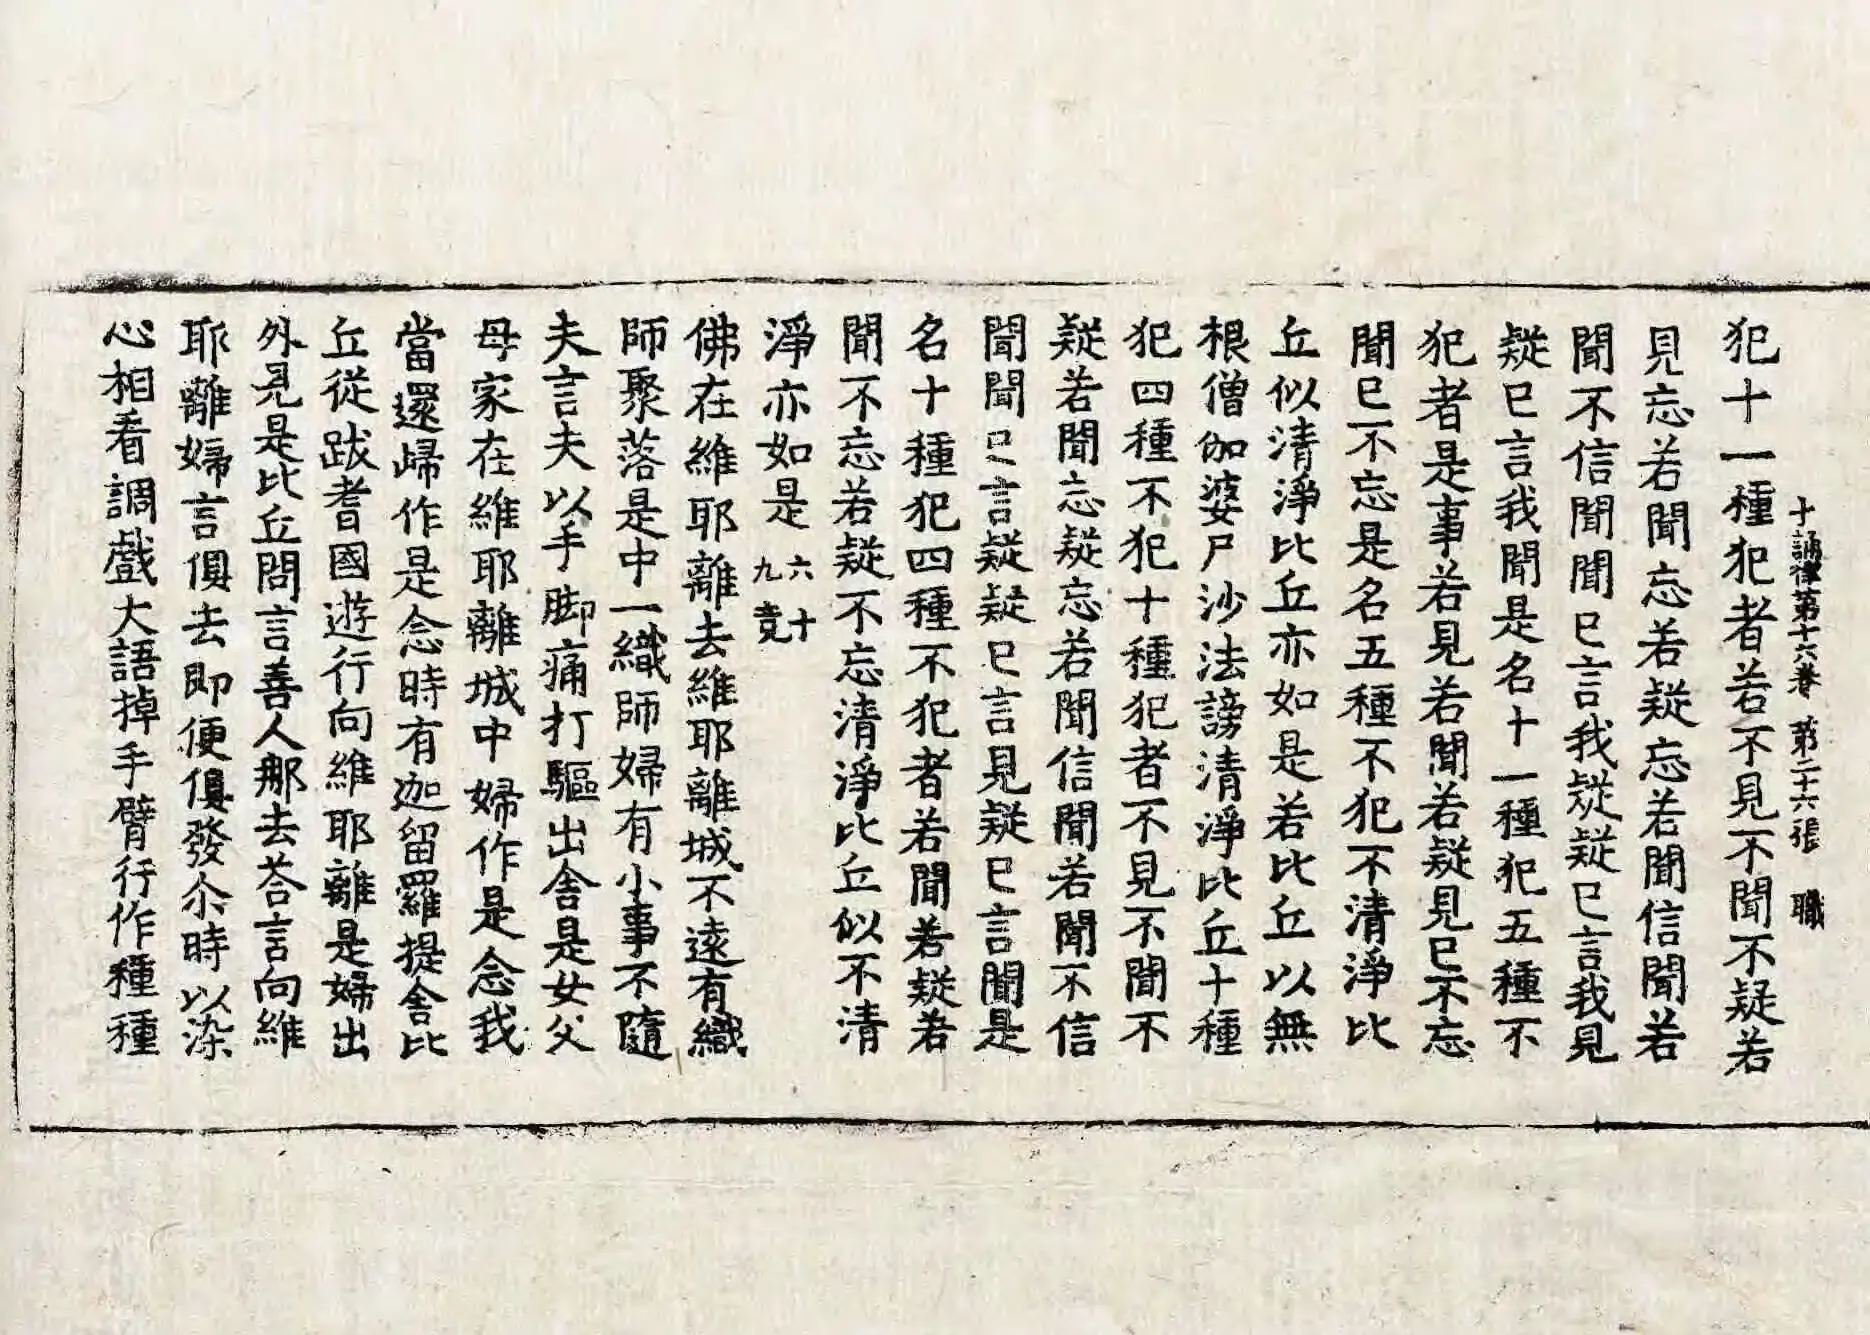 十誦律第十六卷 第二十六張 職
犯十一種犯者若不見不聞不疑若
見忘若聞忘若疑忘若聞信聞若
聞不信聞聞已言我疑疑已言我見
疑已言我聞是名十一種犯五種不
犯者是事若見若聞若疑見已不忘
聞已不忘是名五種不犯不清淨比
丘似清淨比丘亦如是若比丘以無
根僧伽婆尸沙法謗清淨比丘十種
犯四種不犯十種犯者不見不聞不
疑若聞忘疑忘若聞信聞若聞不信
聞聞已言疑疑已言見疑已言聞是
名十種犯四種不犯者若聞若疑若
聞不忘若疑不忘清淨比丘似不清
淨亦如是六十九竟
佛在維耶離去維耶離城不遠有織
師聚落是中一織師婦有小事不隨
夫言夫以手脚痛打驅出舍是女父
母家在維耶離城中婦作是念我
當還歸作是念時有迦留羅提舍比
丘從跋耆國遊行向維耶離是婦出
外見是比丘問言善人那去荅言向維
耶離婦言俱去即便俱發尒時以染
心相看調戲大語掉手臂行作種種